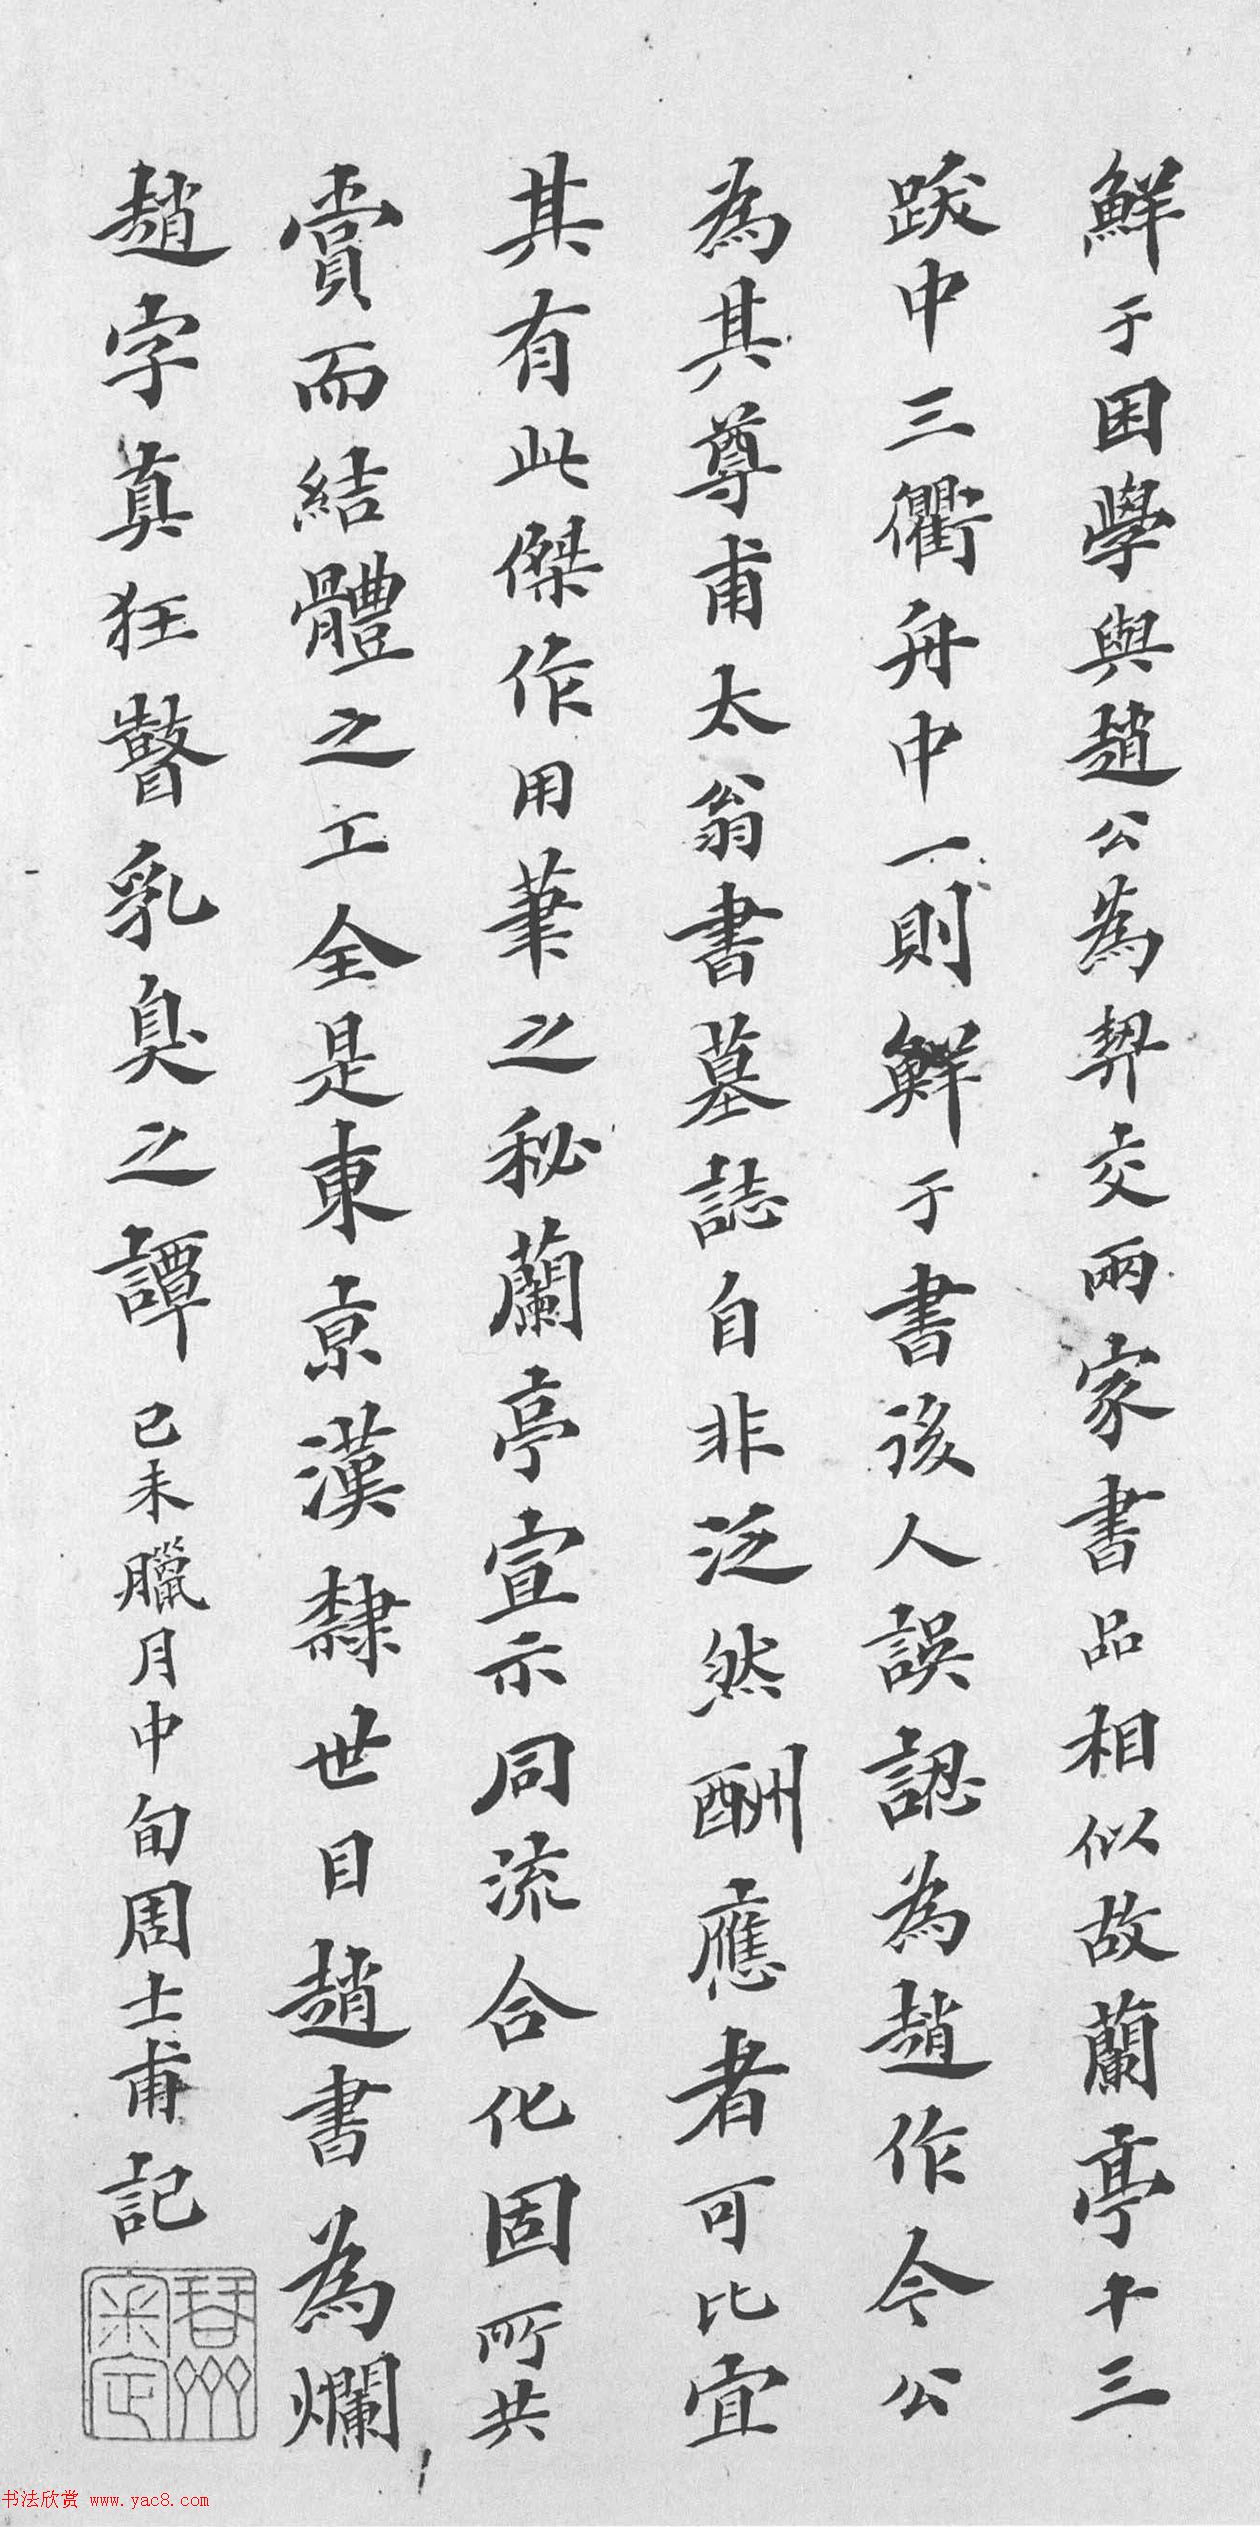 鮮于困學與趙公為契交兩家書品相似故蘭亭十三
跋中三衢舟中一則鮮于書後人誤認為趙作今公
為其尊甫太翁書墓誌自非泛然酬應者可比宜
其有此傑作用筆之秘蘭亭宣示同流合化固所共
賞而結體之工全是東京漢隸世目趙書為爛
趙字真狂瞽乳臭之譚 己未臘月中旬周士甫記
書法欣赏 www.yac8.com